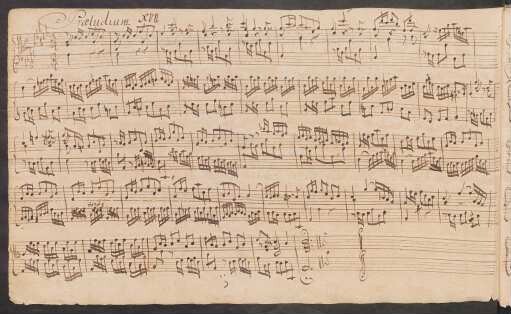 Præludium XVII